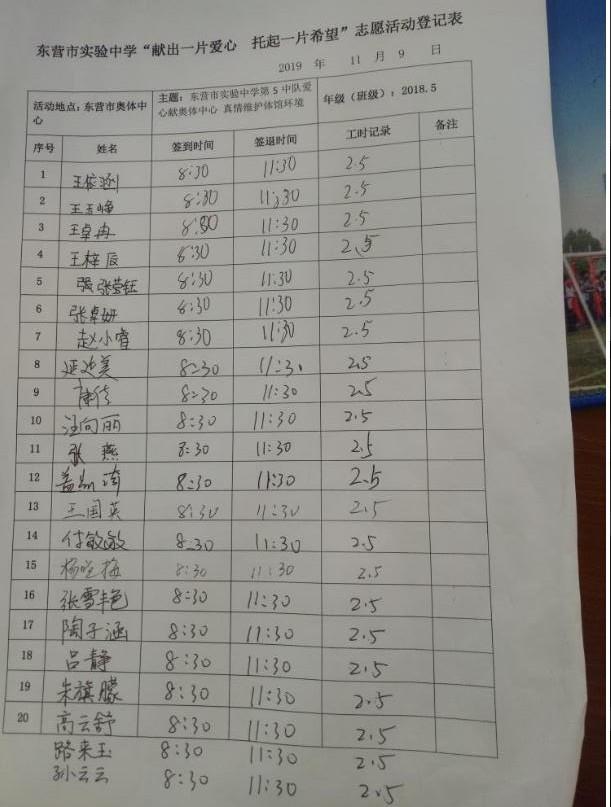 东营市实验中学“献出一片爱心 托起一片希望”志愿活动登记表
2019 年 11 月 9 日
活动地点：东营市奥体中心 主题：东营市实验中学第5中队爱心献奥体中心 真情维护体馆环境 年级（班级）：2018.5
序号 姓名 签到时间 签退时间 工时记录 备注
1 王依涵 8:30 11:30 2.5
2 王玉峥 8:30 11:30 2.5
3 王卓冉 8:30 11:30 2.5
4 王梓辰 8:30 11:30 2.5
5 张莹钰 8:30 11:30 2.5
6 张卓妍 8:30 11:30 2.5
7 赵小睿 8:30 11:30 2.5
8 延边美 8:30 11:30 2.5
9 8:30 11:30 2.5
10 汪向丽 8:30 11:30 2.5
11 张 燕 8:30 11:30 2.5
12 8:30 11:30 2.5
13 王国英 8:30 11:30 2.5
14 付敏敏 8:30 11:30 2.5
15 杨晓梅 8:30 11:30 2.5
16 张雪艳 8:30 11:30 2.5
17 陶子涵 8:30 11:30 2.5
18 吕静 8:30 11:30 2.5
19 朱旗朦 8:30 11:30 2.5
20 高云舒 8:30 11:30 2.5
路来玉 8:30 11:30 2.5
孙云云 8:30 11:30 2.5